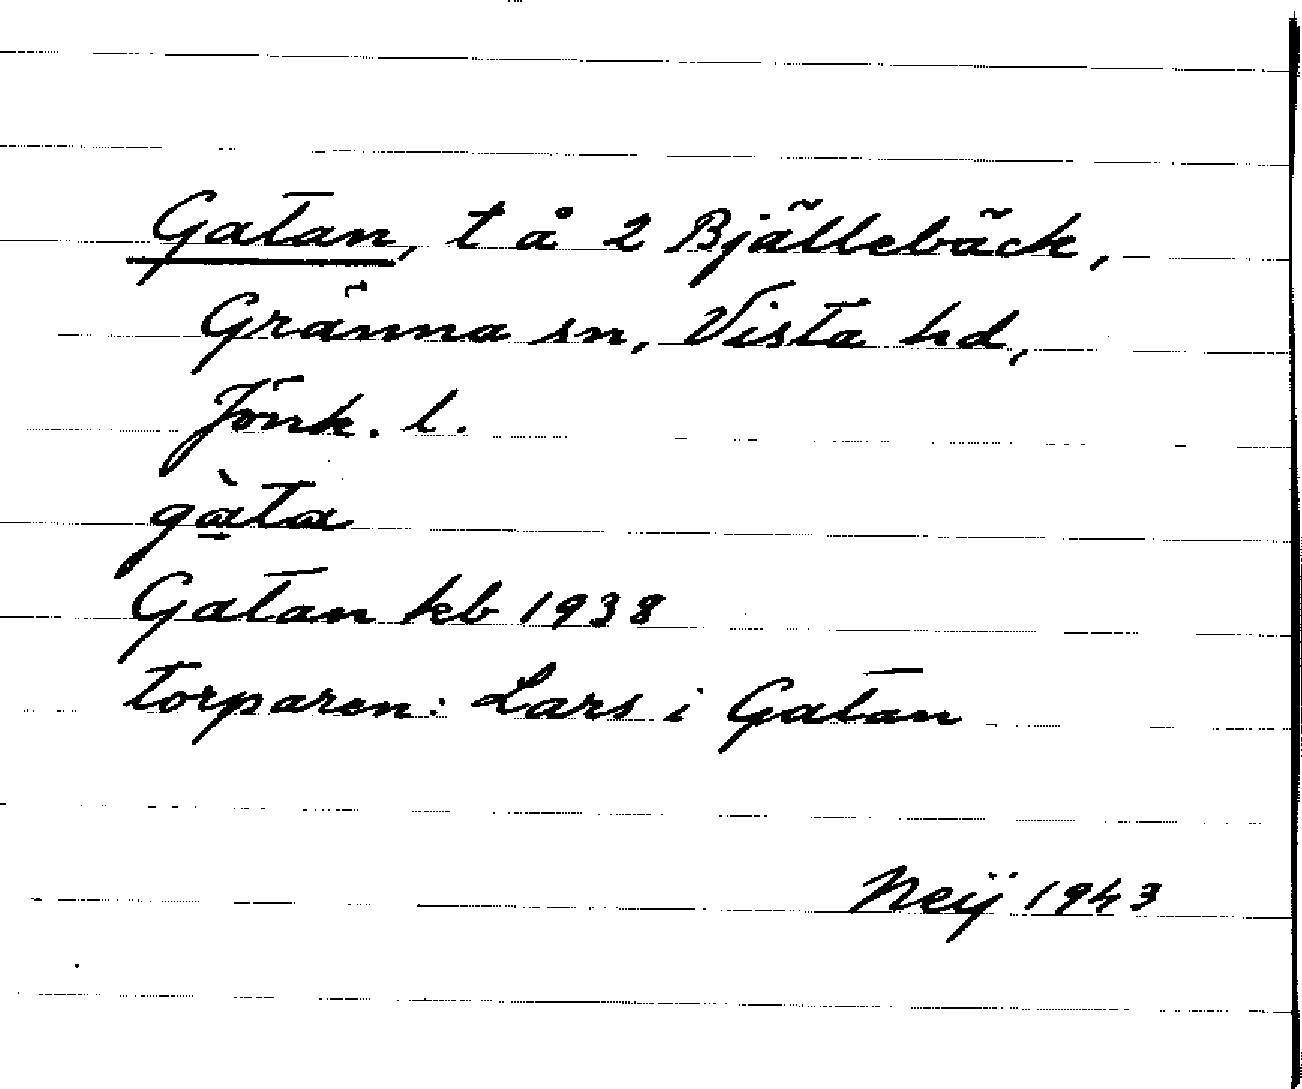 Gatan, t å 2 Bjällebäck,
Gränna sn, Vista hd,
Jönk. l.
gàta
Gatan kb 1938
torparen: Lars i Gatan
Neij 1943